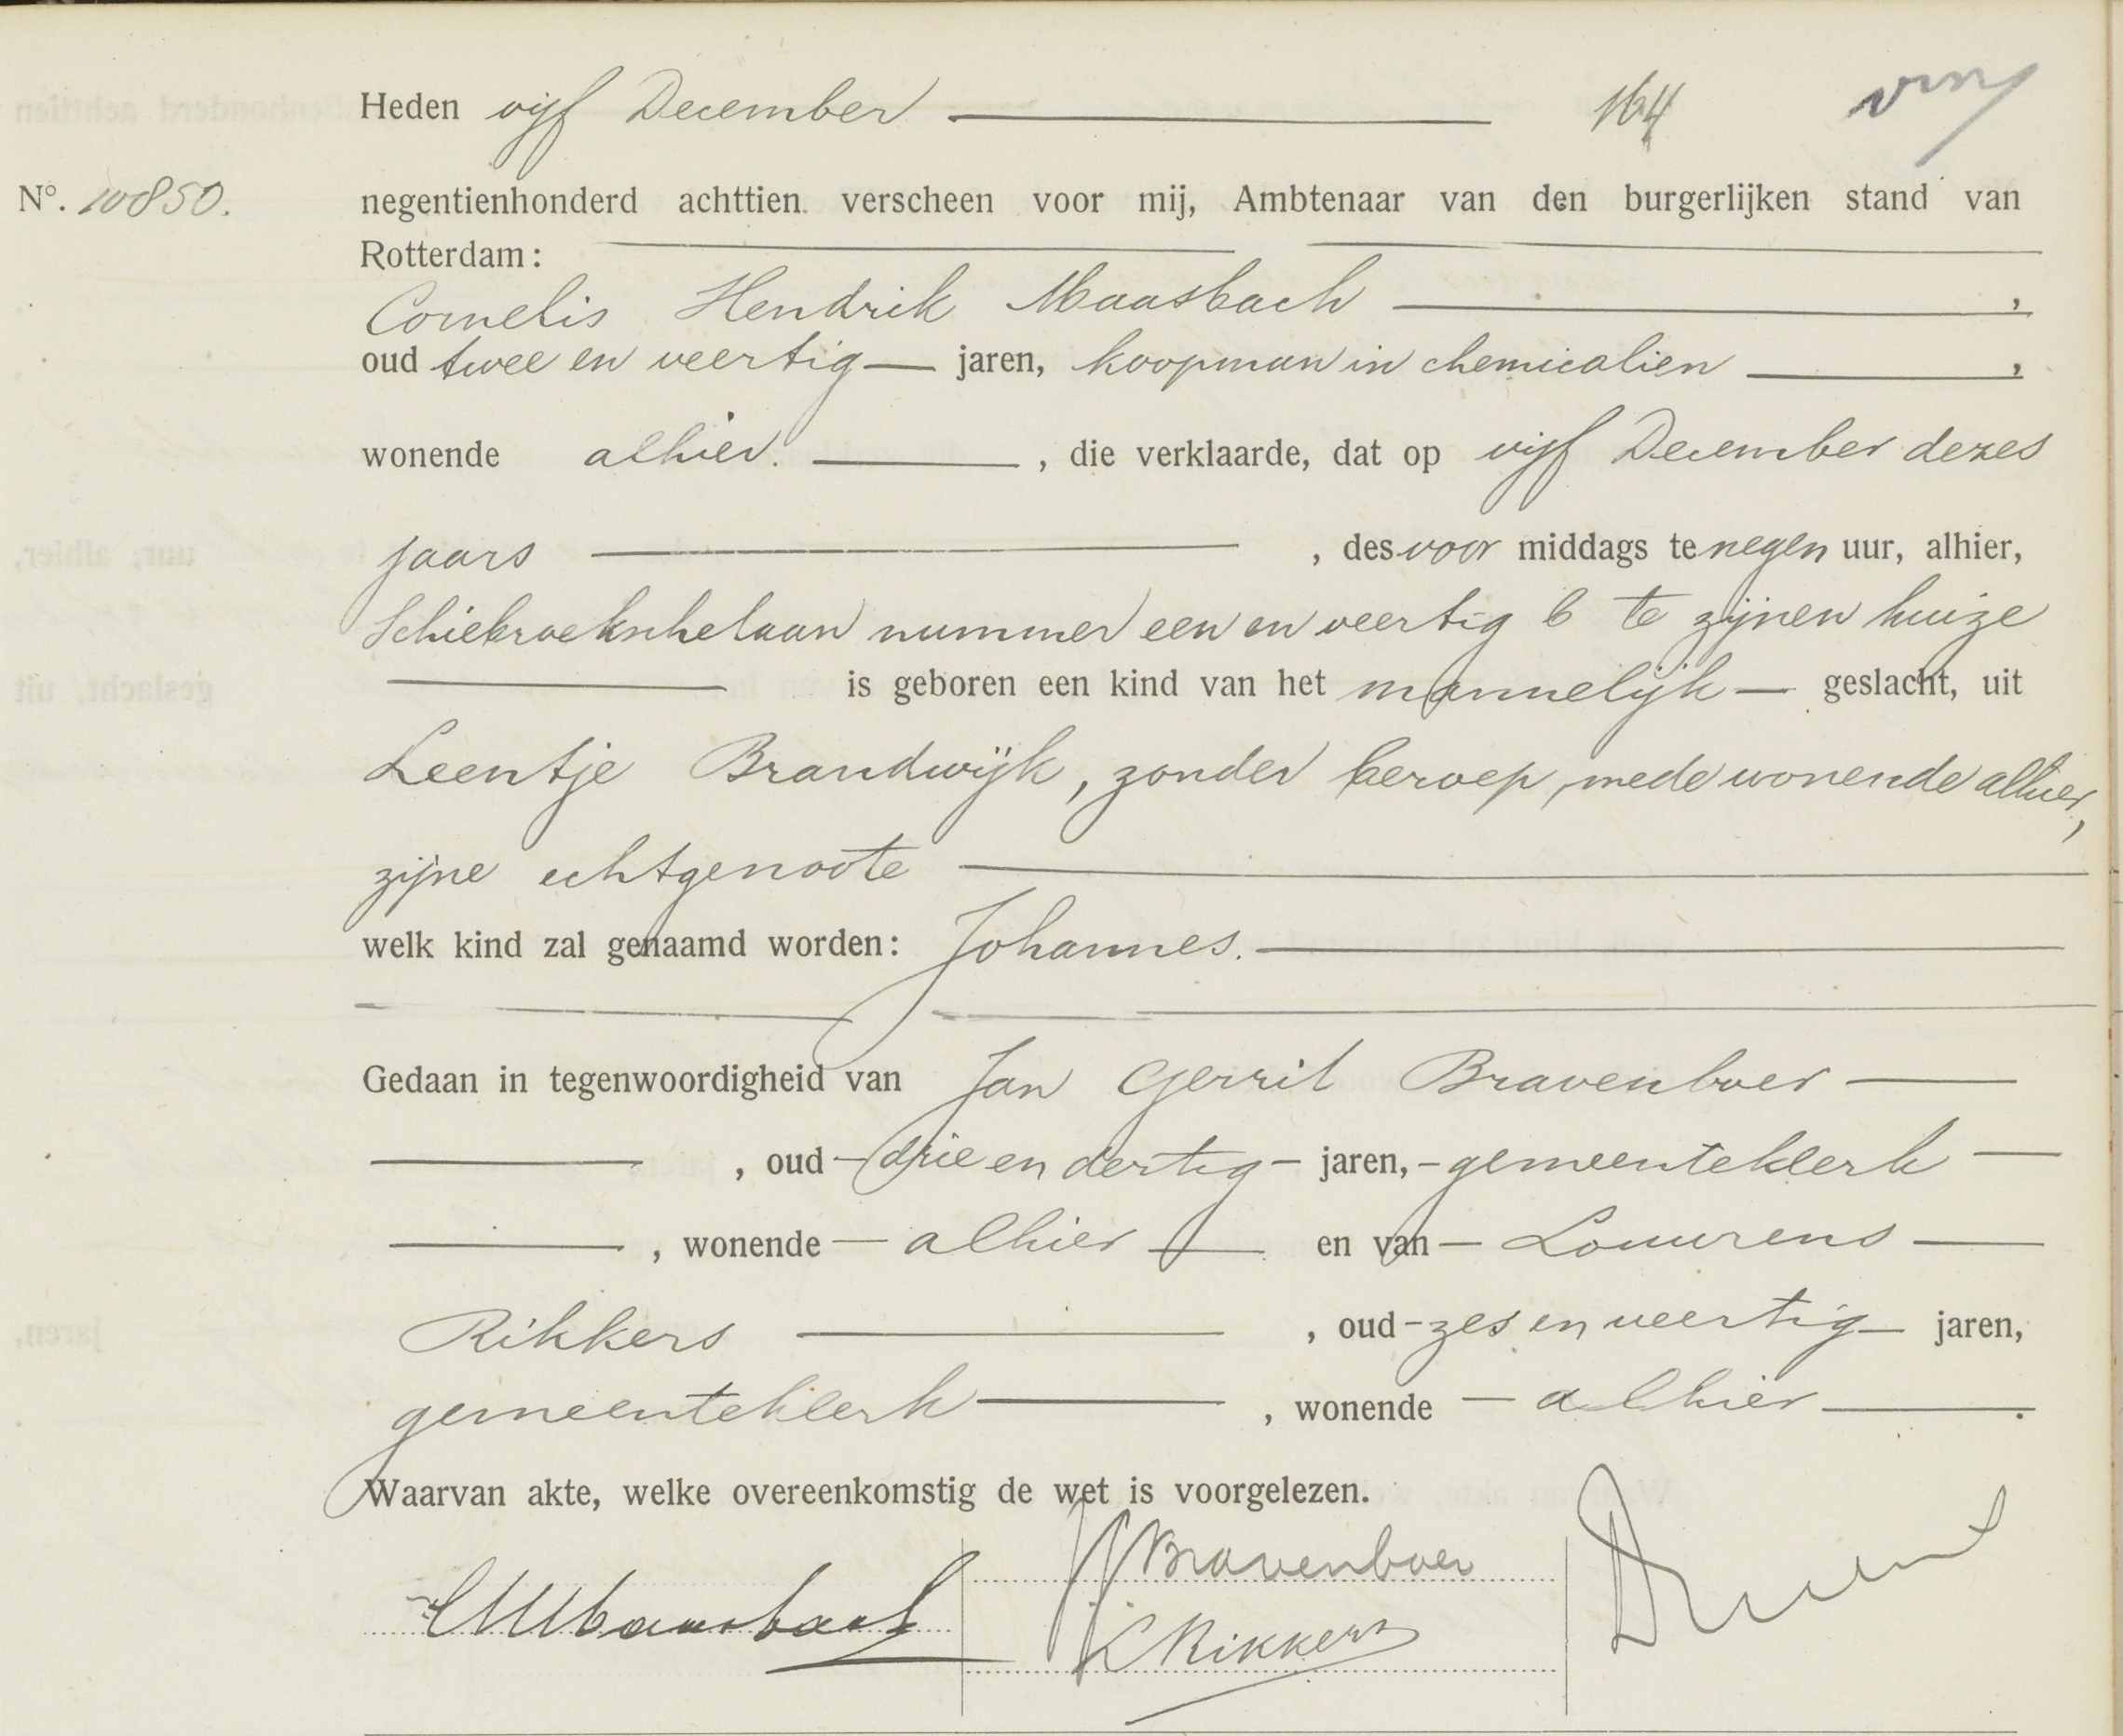 Heden vijf December 164
No. 10850. negentienhonderd achttien verscheen voor mij, Ambtenaar van den burgerlijken stand van
Rotterdam:
Cornelis Hendrik Maasbach ,
oud twee en veertig jaren, koopman in chemicalien ,
wonende alhier. , die verklaarde, dat op vijf December dezes
jaars , des voor middags te negen uur, alhier,
Schiebroekschelaan nummer een en veertig b te zijnen huize
is geboren een kind van het mannelijk geslacht, uit
Leentje Brandwijk, zonder beroep, mede wonende alhier,
zijne echtgenoote
welk kind zal genaamd worden: Johannes.
Gedaan in tegenwoordigheid van Jan Gerrit Bravenboer
, oud drie en dertig jaren, gemeenteklerk
, wonende alhier en van Lourens
Rikkers , oud zes en veertig jaren,
gemeenteklerk , wonende alhier .
Waarvan akte, welke overeenkomstig de wet is voorgelezen.
JGBravenboer
CHMaasbach
LRikkers